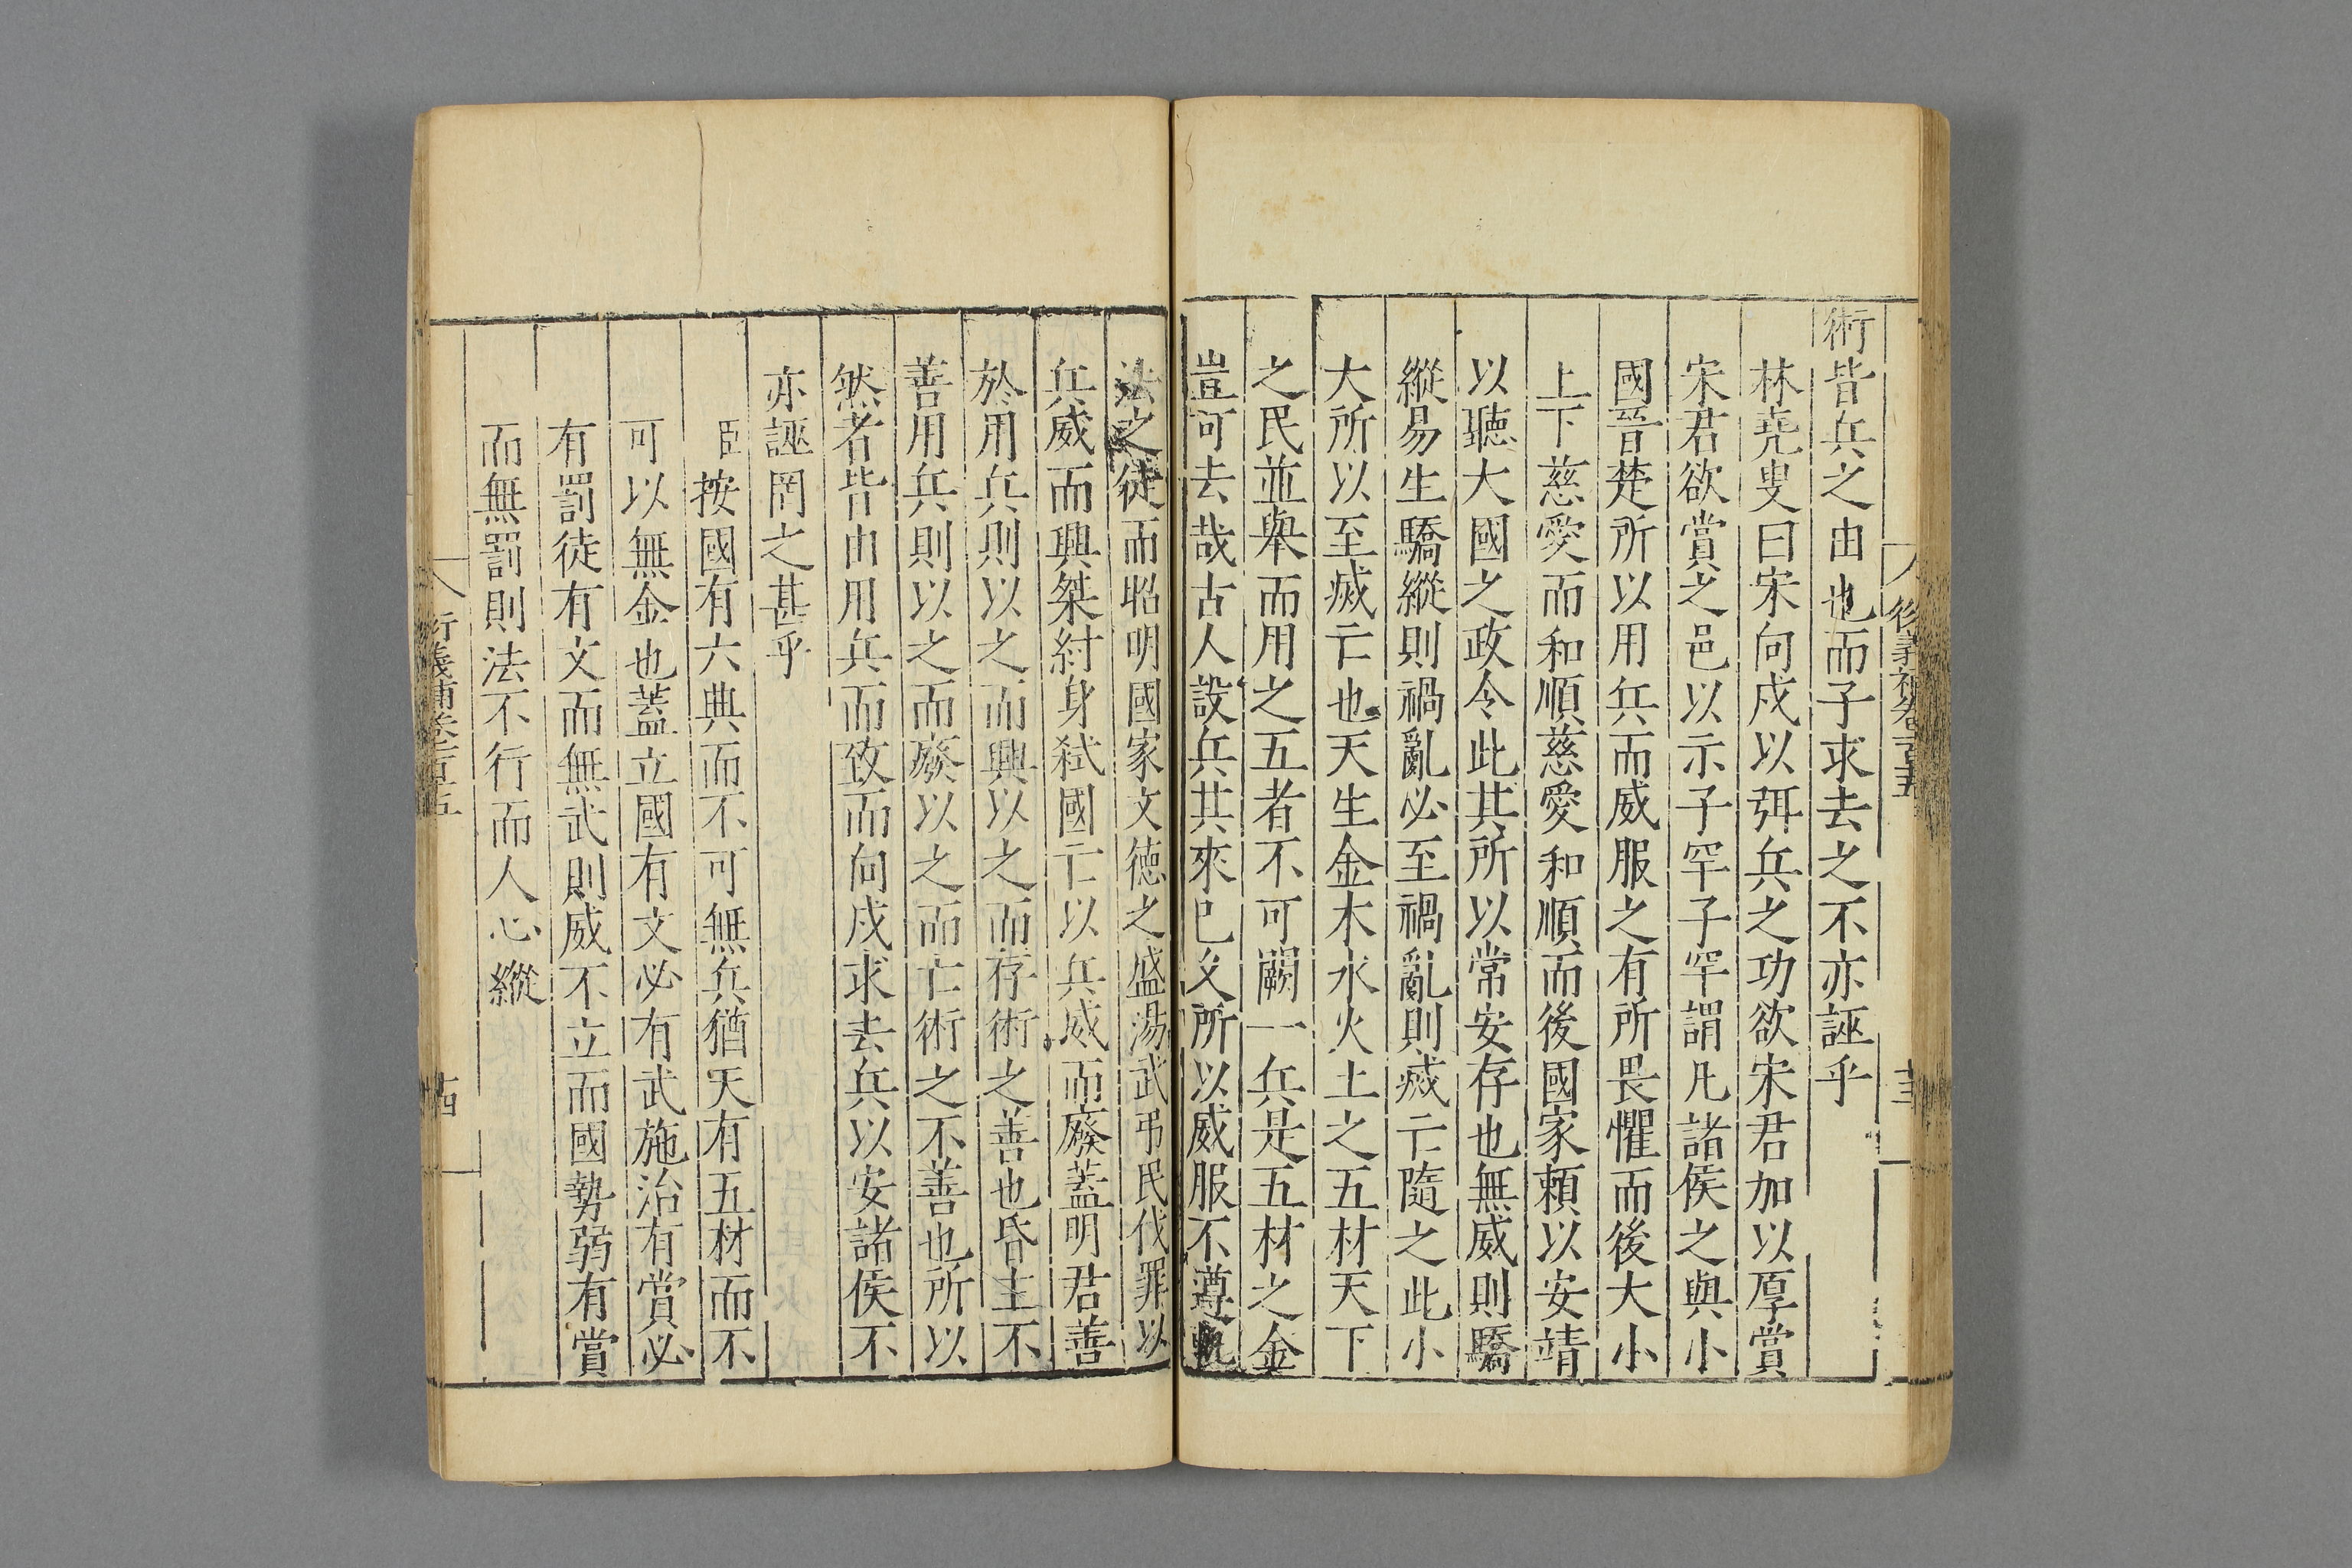 術皆兵之由也而子求去之不亦誣乎
林堯叟曰宋向戌以弭兵之功欲宋君加以厚賞
宋君欲賞之邑以示子罕子罕謂凡諸侯之與小
國晉楚所以用兵而威服之有所畏懼而後大小
上下慈愛而和順慈愛和順而後國家頼以安靖
以聽大國之政令此其所以常安存也無威則驕
縱易生驕縱則禍亂必至禍亂則㓕亡隨之此小
大所以至㓕亡也天生金木水火土之五材天下
之民並舉而用之五者不可闕一兵是五材之金
豈可去哉古人設兵其來已久所以威服不遵軌
法之徒而昭明國家文徳之盛湯武弔民伐罪以
兵威而興桀紂身弑國亡以兵威而廢蓋明君善
於用兵則以之而興以之而存術之善也昏主不
善用兵則以之而廢以之而亡術之不善也所以
然者皆由用兵而致而向戌求去兵以安諸侯不
亦誣罔之甚乎
臣按國有六典而不可無兵猶天有五材而不
可以無金也蓋立國有文必有武施治有賞必
有罰徒有文而無武則威不立而國勢弱有賞
而無罰則法不行而人心縱